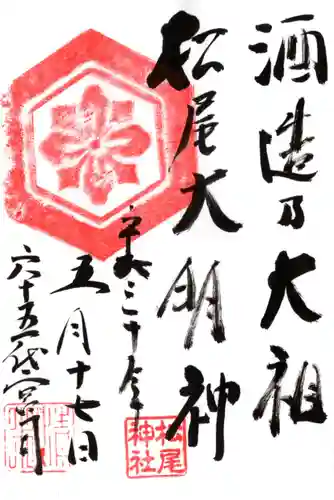 酒造乃大祖
松尾大明神
平成三十年
五月十七日
六十五代宮司
松尾神社